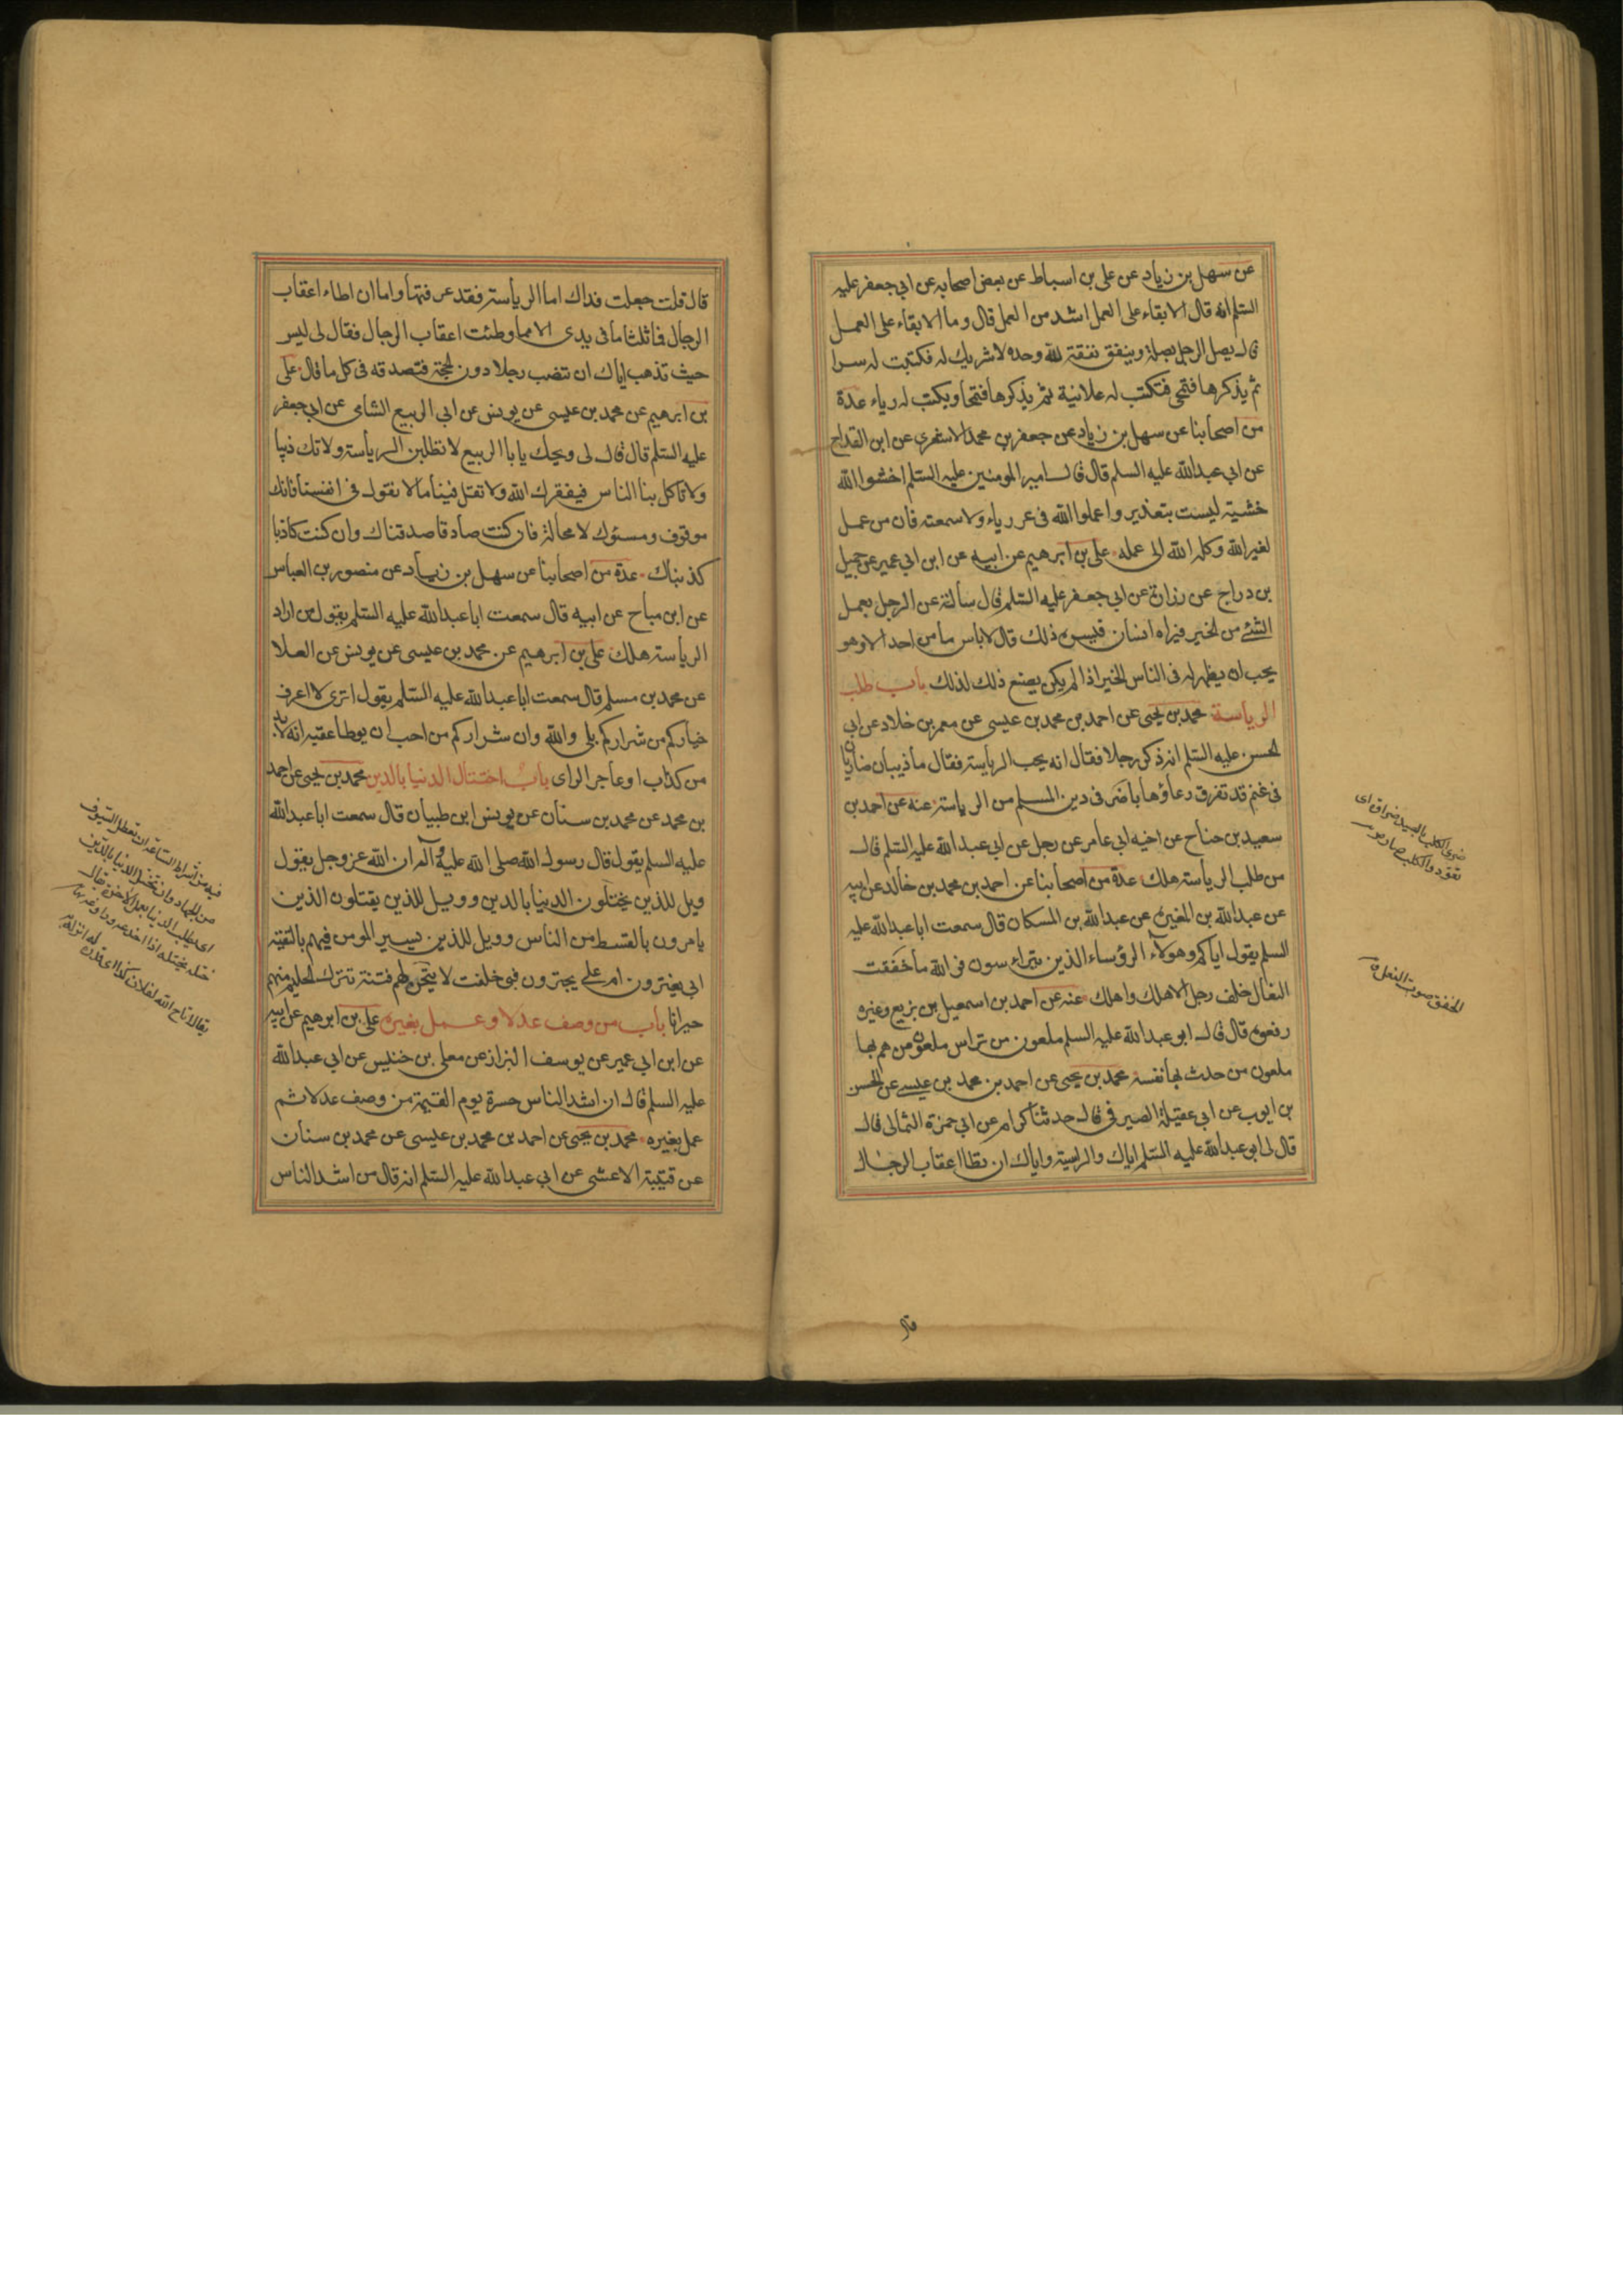 عن سهل بن زياد عن على بن اسباط عن بعض اصحابه عن ابي جعفر عليه
السلم انه قال الابقاء على العمل اشد من العمل قال وما الابقاء على العمل
قال يصل الرجل بصلة وينفق نفقة لله وحده لا شريك له فكتبت له سرا
ثم يذكرها فتمحى فتكتب له علانية ثم يذكرها فتمحا ويكتب له رياء عدة
من اصحابنا عن سهل بن زياد عن جعفر بن محمد الاشعري عن ابن القداح
عن ابي عبدالله عليه السلم قال قال امير المومنين عليه السلم اخشوا الله
خشية ليست بتعذير واعملوا الله فى غر رياء ولا سمعته فان من عمل
لغير الله وكله الله الى عمله على بن ابرهيم عن ابيه عن ابن ابي عمير عن جميل
بن دراج عن زرارة عن ابي جعفر عليه السلم قال سألته عن الرجل يعمل
الشئ من الخير فيراه انسان فيسره ذلك قال لاباس ما من احد الا وهو
يحب ان يظهر له فى الناس الخير اذا لم يكن يصنع ذلك لذلك باب طلب
الرياسة محمد بن يحيى عن احمد بن محمد بن عيسى عن معمر بن خلاد عن ابي
الحسن عليه السلم انه ذكر رجلا فقال انه يحب الرياسة فقال ما ذيبان ضاريان
فى غنم قد تفرق رعاؤها باضر فى دين المسلم من الرياسة عنه عن احمد بن
سعيد بن جناح عن اخيه ابي عامر عن رجل عن ابي عبدالله عليه السلم قال
من طلب الرياسة هلك عدة من اصحابنا عن احمد بن محمد بن خالد عن ابيه
عن عبدالله بن المغيرة عن عبدالله بن المسكان قال سمعت ابا عبدالله عليه
السلم يقول اياكم وهولآء الرؤساء الذين يتراءسون فى الله ما خفقت
النعال خلف رجل الا هلك واهلك عنه عن احمد بن اسمعيل بن بزيع وغيره
رفعوه قال قال ابو عبدالله عليه السلم ملعون من تراس ملعون من هم بها
ملعون من حدث بها نفسه محمد بن يحيى عن احمد بن محمد بن عيسى عن الحسن
بن ايوب عن ابي عقيلة الصيرفى قال حدثنا كرام عن ابي حمزة الثمالى قال
قال لى ابو عبدالله عليه السلم اياك والرياسة واياك ان تطا اعقاب الرجال
ضرى الكلب بالصيد ضراوة اى
تعود والكلب ضار
الخفق صوت النعل
قال
قال قلت جعلت فداك اما الرياسة فقد عرفتها واما ان اطاء اعقاب
الرجال فما ثلثا ما فى يدى الا مما وطئت اعقاب الرجال فقال لى ليس
حيث تذهب اياك ان تنصب رجلا دون الحجة فتصدقه فى كل ما قال على
بن ابرهيم عن محمد بن عيسى عن يونس عن ابي الربيع الشامى عن ابي جعفر
عليه السلم قال قال لى ويحك يا با الربيع لا تطلبن الرياسة ولا تك ذيبا
ولا تاكل بنا الناس فيفقرك الله ولا تقل فينا ما لا نقول فى انفسنا فانك
موقوف ومسئول لا محالة فان كنت صادقا صدقناك وان كنت كاذبا
كذبناك عدة من اصحابنا عن سهل بن زياد عن منصور بن العباس
عن ابن مياح عن ابيه قال سمعت ابا عبدالله عليه السلم يقول من اراد
الرياسة هلك على بن ابرهيم عن محمد بن عيسى عن يونس عن العلا
عن محمد بن مسلم قال سمعت ابا عبدالله عليه السلم يقول اترى لا اعرف
خياركم من شراركم بلى والله وان شراركم من احب ان يوطا عقبه انه لا بد
من كذاب او عاجز الراى باب اختتال الدنيا بالدين محمد بن يحيى عن احمد
بن محمد عن محمد بن سنان عن يونس ابن ظبيان قال سمعت ابا عبدالله
عليه السلم يقول قال رسول الله صلى الله عليه وآله ان الله عز وجل يقول
ويل للذين يختلون الدنيا بالدين وويل للذين يقتلون الذين
يامرون بالقسط من الناس وويل للذين يسير المومن فيهم بالتقية
ابي يغترون ام على يجترون فبى حلفت لا تيحن لهم فتنة تترك الحليم منهم
حيرانا باب من وصف عدلا وعمل بغيره على بن ابرهيم عن ابيه
عن ابن ابي عمير عن يوسف البزاز عن معلى بن خنيس عن ابي عبدالله
عليه السلم قال ان اشد الناس حسرة يوم القيمة من وصف عدلا ثم
عمل بغيره محمد بن يحيى عن احمد بن محمد بن عيسى عن محمد بن سنان
عن قتيبة الاعشى عن ابي عبدالله عليه السلم انه قال من اشد الناس
فيه من اشراط الساعة ان تعطل السيوف
من الجهاد وان تختل الدنيا بالدين
اى يطلب الدنيا بعمل الاخرة يقال
ختله يختله اذا خدعه
يقال اتاح الله لفلان كذا اى قدره له